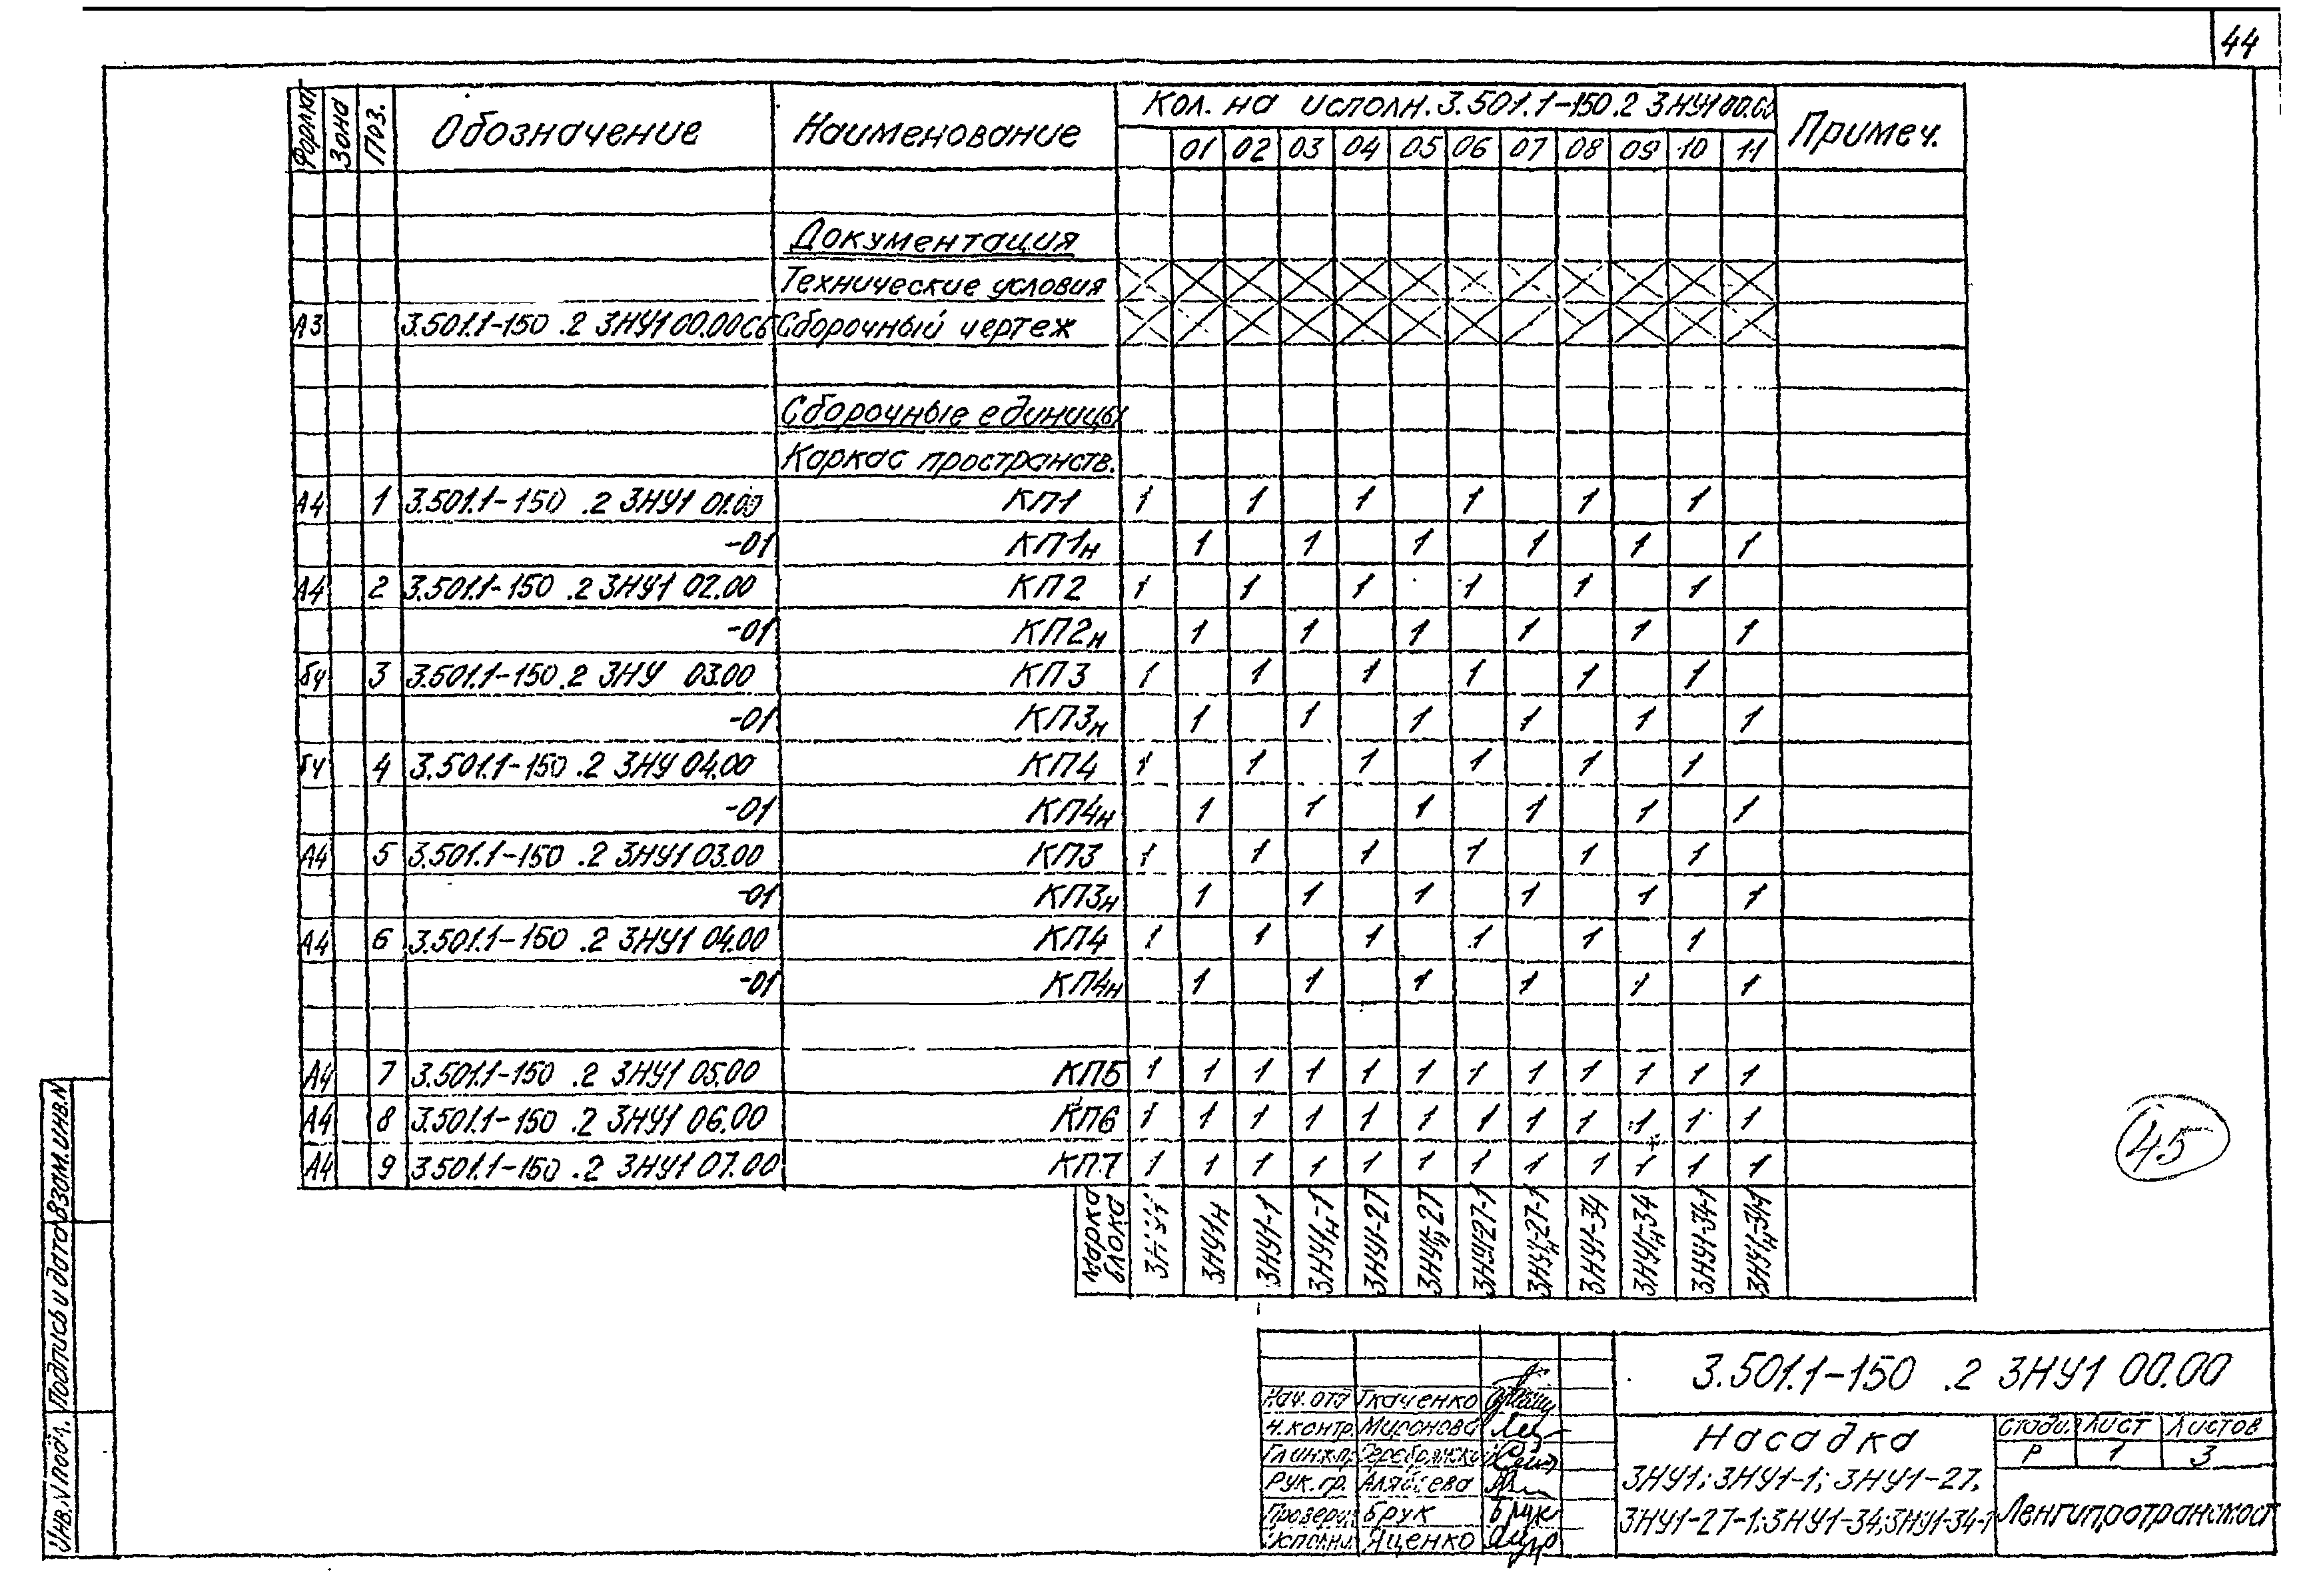 44
Формат Зона Поз. Обозначение Наименование Кол. на исполн. 3.501.1-150.2 3НУ1 00.00 Примеч.
01 02 03 04 05 06 07 08 09 10 11
Документация
Технические условия
А3 3.501.1-150 .2 3НУ1 00.00СБ Сборочный чертеж
Сборочные единицы
Каркас пространств.
А4 1 3.501.1-150 .2 3НУ1 01.00 КП1 1 1 1 1 1 1
-01 КП1н 1 1 1 1 1 1
А4 2 3.501.1-150 .2 3НУ1 02.00 КП2 1 1 1 1 1 1
-01 КП2н 1 1 1 1 1 1
бч 3 3.501.1-150 .2 3НУ 03.00 КП3 1 1 1 1 1 1
-01 КП3н 1 1 1 1 1 1
бч 4 3.501.1-150 .2 3НУ 04.00 КП4 1 1 1 1 1 1
-01 КП4н 1 1 1 1 1 1
А4 5 3.501.1-150 .2 3НУ1 03.00 КП3 1 1 1 1 1 1
-01 КП3н 1 1 1 1 1 1
А4 6 3.501.1-150 .2 3НУ1 04.00 КП4 1 1 1 1 1 1
-01 КП4н 1 1 1 1 1 1
А4 7 3.501.1-150 .2 3НУ1 05.00 КП5 1 1 1 1 1 1 1 1 1 1 1 1
А4 8 3.501.1-150 .2 3НУ1 06.00 КП6 1 1 1 1 1 1 1 1 1 1 1 1
А4 9 3.501.1-150 .2 3НУ1 07.00 КП7 1 1 1 1 1 1 1 1 1 1 1 1
Марка блока 3НУ1 3НУ1н 3НУ1-1 3НУ1н-1 3НУ1-27 3НУ1н-27 3НУ1-27-1 3НУ1н-27-1 3НУ1-34 3НУ1н-34 3НУ1-34-1 3НУ1н-34-1
45
Инв. N подл. Подпись и дата Взам. инв. N
3.501.1-150 .2 3НУ1 00.00
Нач. отд Ткаченко
Н.контр. Миронова
Гл.инж.пр.
Рук. гр. Алябьева
Провери. Брук Брук
Исполни. Яценко
Насадка
3НУ1; 3НУ1-1; 3НУ1-27;
3НУ1-27-1; 3НУ1-34; 3НУ1-34-1
Стади. Лист Листов
Р 1 3
Ленгипротрансмост